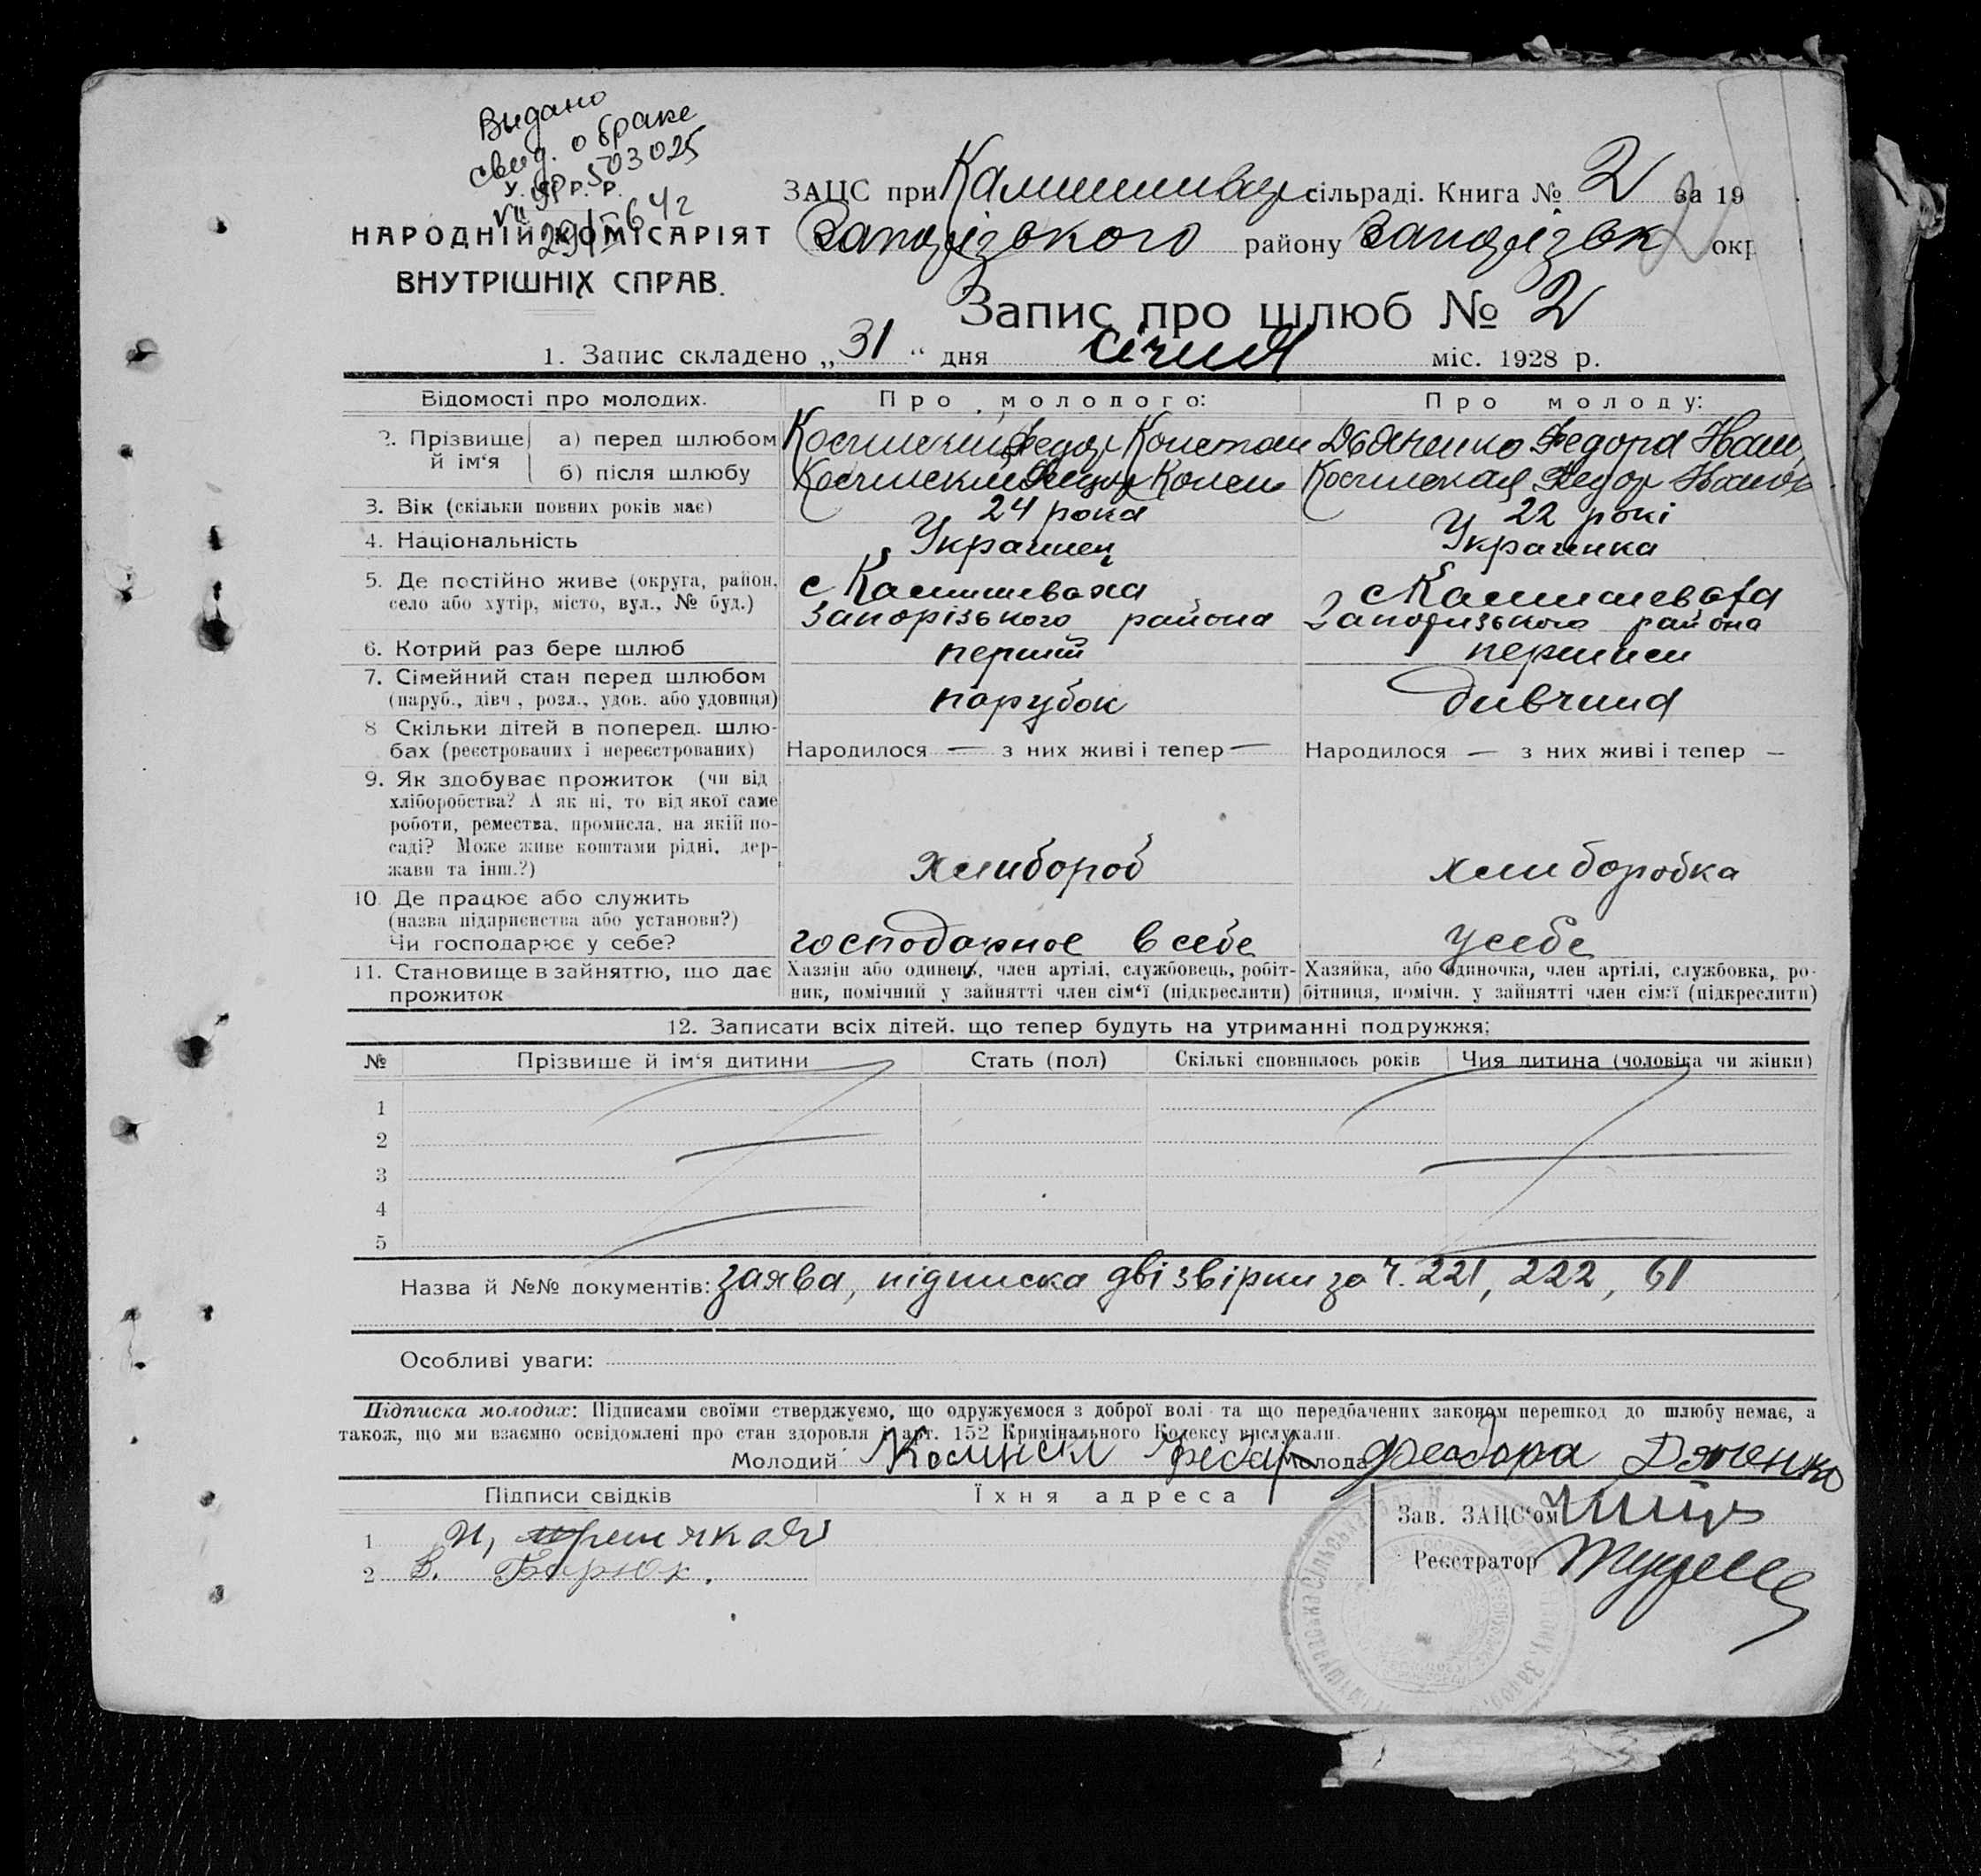 Видано
свид. о браке
503025
У. С. Р. Р.
29/I 64 г
НАРОДНІЙ КОМІСАРІЯТ
ВНУТРІШНІХ СПРАВ.
ЗАЦС при сільраді. Книга № 2 за 19
Запорізького району Запорізьк окр
Запис про шлюб № 2
1. Запис складено „31“ дня січня міс. 1928 р.
Відомості про молодих. Про молодого: Про молоду:
2. Прізвище й ім‘я
а) перед шлюбом Федор Констан Федора Иван
б) після шлюбу Федор
3. Вік (скільки повних років має) 24 рока 22 рокі
4. Національність Украинец Украинка
5. Де постійно живе (округа, район, с Камишеваха с Камишеваха
село або хутір, місто, вул., № буд.) Запорізького района района
6. Котрий раз бере шлюб
7. Сімейний стан перед шлюбом
(паруб., дівч., розл., удов. або удовиця) парубок дивчина
8 Скільки дітей в поперед. шлю-
бах (реєстрованих і нереєстрованих) Народилося — з них живі і тепер — Народилося — з них живі і тепер —
9. Як здобуває прожиток (чи від
хліборобства? А як ні, то від якої саме
роботи, ремества, промисла, на якій по-
саді? Може живе коштами рідні, дер-
жави та інш.?) хлибороб хлиборобка
10. Де працює або служить
(назва підприємства або установи?)
Чи господарює у себе? в себе усебе
11. Становище в зайняттю, що дає Хазяїн або одинець, член артілі, службовець, робіт- Хазяйка, або одиночка, член артілі, службовка, ро-
прожиток ник, помічний у зайнятті член сім‘ї (підкреслити) бітниця, помічн. у зайнятті член сім‘ї (підкреслити)
12. Записати всіх дітей, що тепер будуть на утриманні подружжя:
№ Прізвише й ім‘я дитини Стать (пол) Скількі сповнилось років Чия дитина (чоловіка чи жінки)
1
2
3
4
5
Назва й №№ документів: заява, підписка дві звірки за ч. 221, 222, 61
Особливі уваги:
Підписка молодих: Підписами своїми стверджуємо, що одружуємося з доброї волі та що передбачених законом перешкод до шлюбу немає, а
також, що ми взаємно освідомлені про стан здоровля і арт. 152 Кримінального Кодексу вислухали.
Молодий Молода Феодора Дяченко
Підписи свідків Їхня адреса
Зав. ЗАЦС‘ом
1
Реєстратор
2 В. Бирюк.